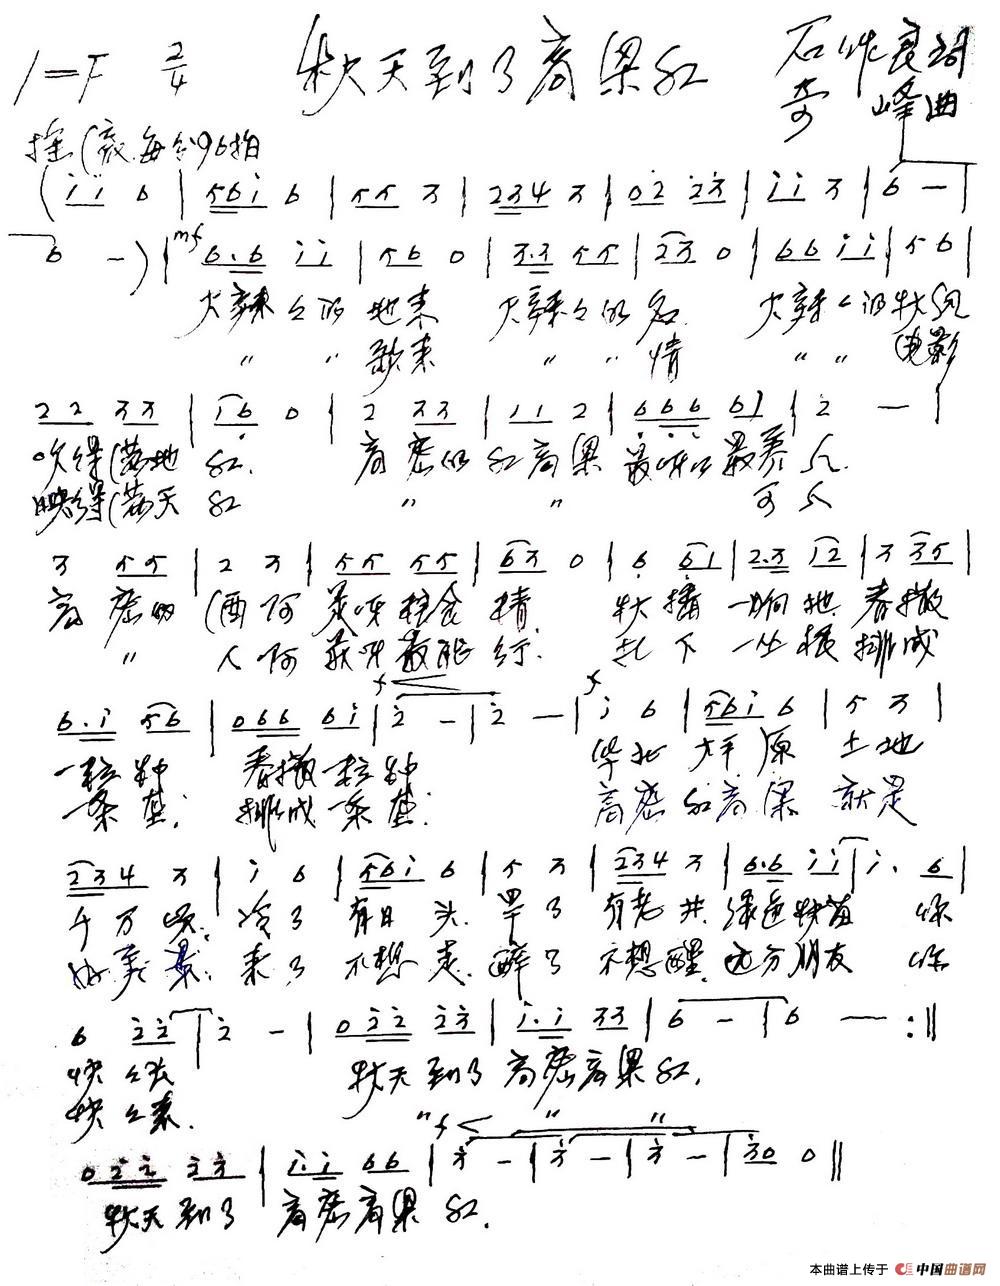 1=F 2/4 秋天到了高粱红 石作良词
峰曲
摇滚 每分96拍
(i i 6 | 5 6 i 6 | 5 5 3 | 2 3 4 3 | 0 2 2 3 | i i 3 | 6 — |
6 —) | mf 6. 6 i i | 5 6 0 | 3. 3 5 5 | 2 3 0 | 6 6 i i | 5 6 |
火辣々的 地来 火辣々的 名 火辣々的秋风
〃 〃 歌来 〃 〃 情 〃 〃 电影
2 2 3 3 | 1 6 0 | 2 3 3 | 1 1 2 | 6 6 6 6 1 | 2 — |
吹得(落地 红. 高密的 红高粱 最呀么最养人.
映得(满天 红 〃 〃 可人
3 5 5 | 2 3 | 5 5 5 5 | 6 3 0 | 6 6 1 | 2. 3 1 2 | 3 3 5 |
高密的 (酒 阿 美呀 精 秋播 一垧地 春撒
〃 人 阿 最呀最能行. 扎下 一丛根 排成
6. i 5 6 | 0 6 6 6 i | f 2 — | 2 — | f i 6 | 5 6 i 6 | 5 3 |
一粒种 春撒一粒种 华北 大平原 土地
一条垄; 排成一条垄; 高密 红高粱 就是
2 3 4 3 | i 6 | 5 6 i 6 | 5 3 | 2 3 4 3 | 6. 6 i i | i. 6 |
千万顷; 冷了 有日头 旱了 有老井. 绿色秧苗 你
好美景; 来了 不想走. 醉了 不想醒. 远方朋友 你
6 2 2 | 2 — | 0 2 2 2 3 | i. i 3 3 | 6 — | 6 — :||
快々长 秋天到了 高密高粱红.
快々来.
〃 f 〃 〃
0 2 2 2 3 | i. i 6 6 | 3 — | 3 — | 3 — | 3 0 0 ||
秋天到了 高密高粱 红.
本曲谱上传于 中国曲谱网